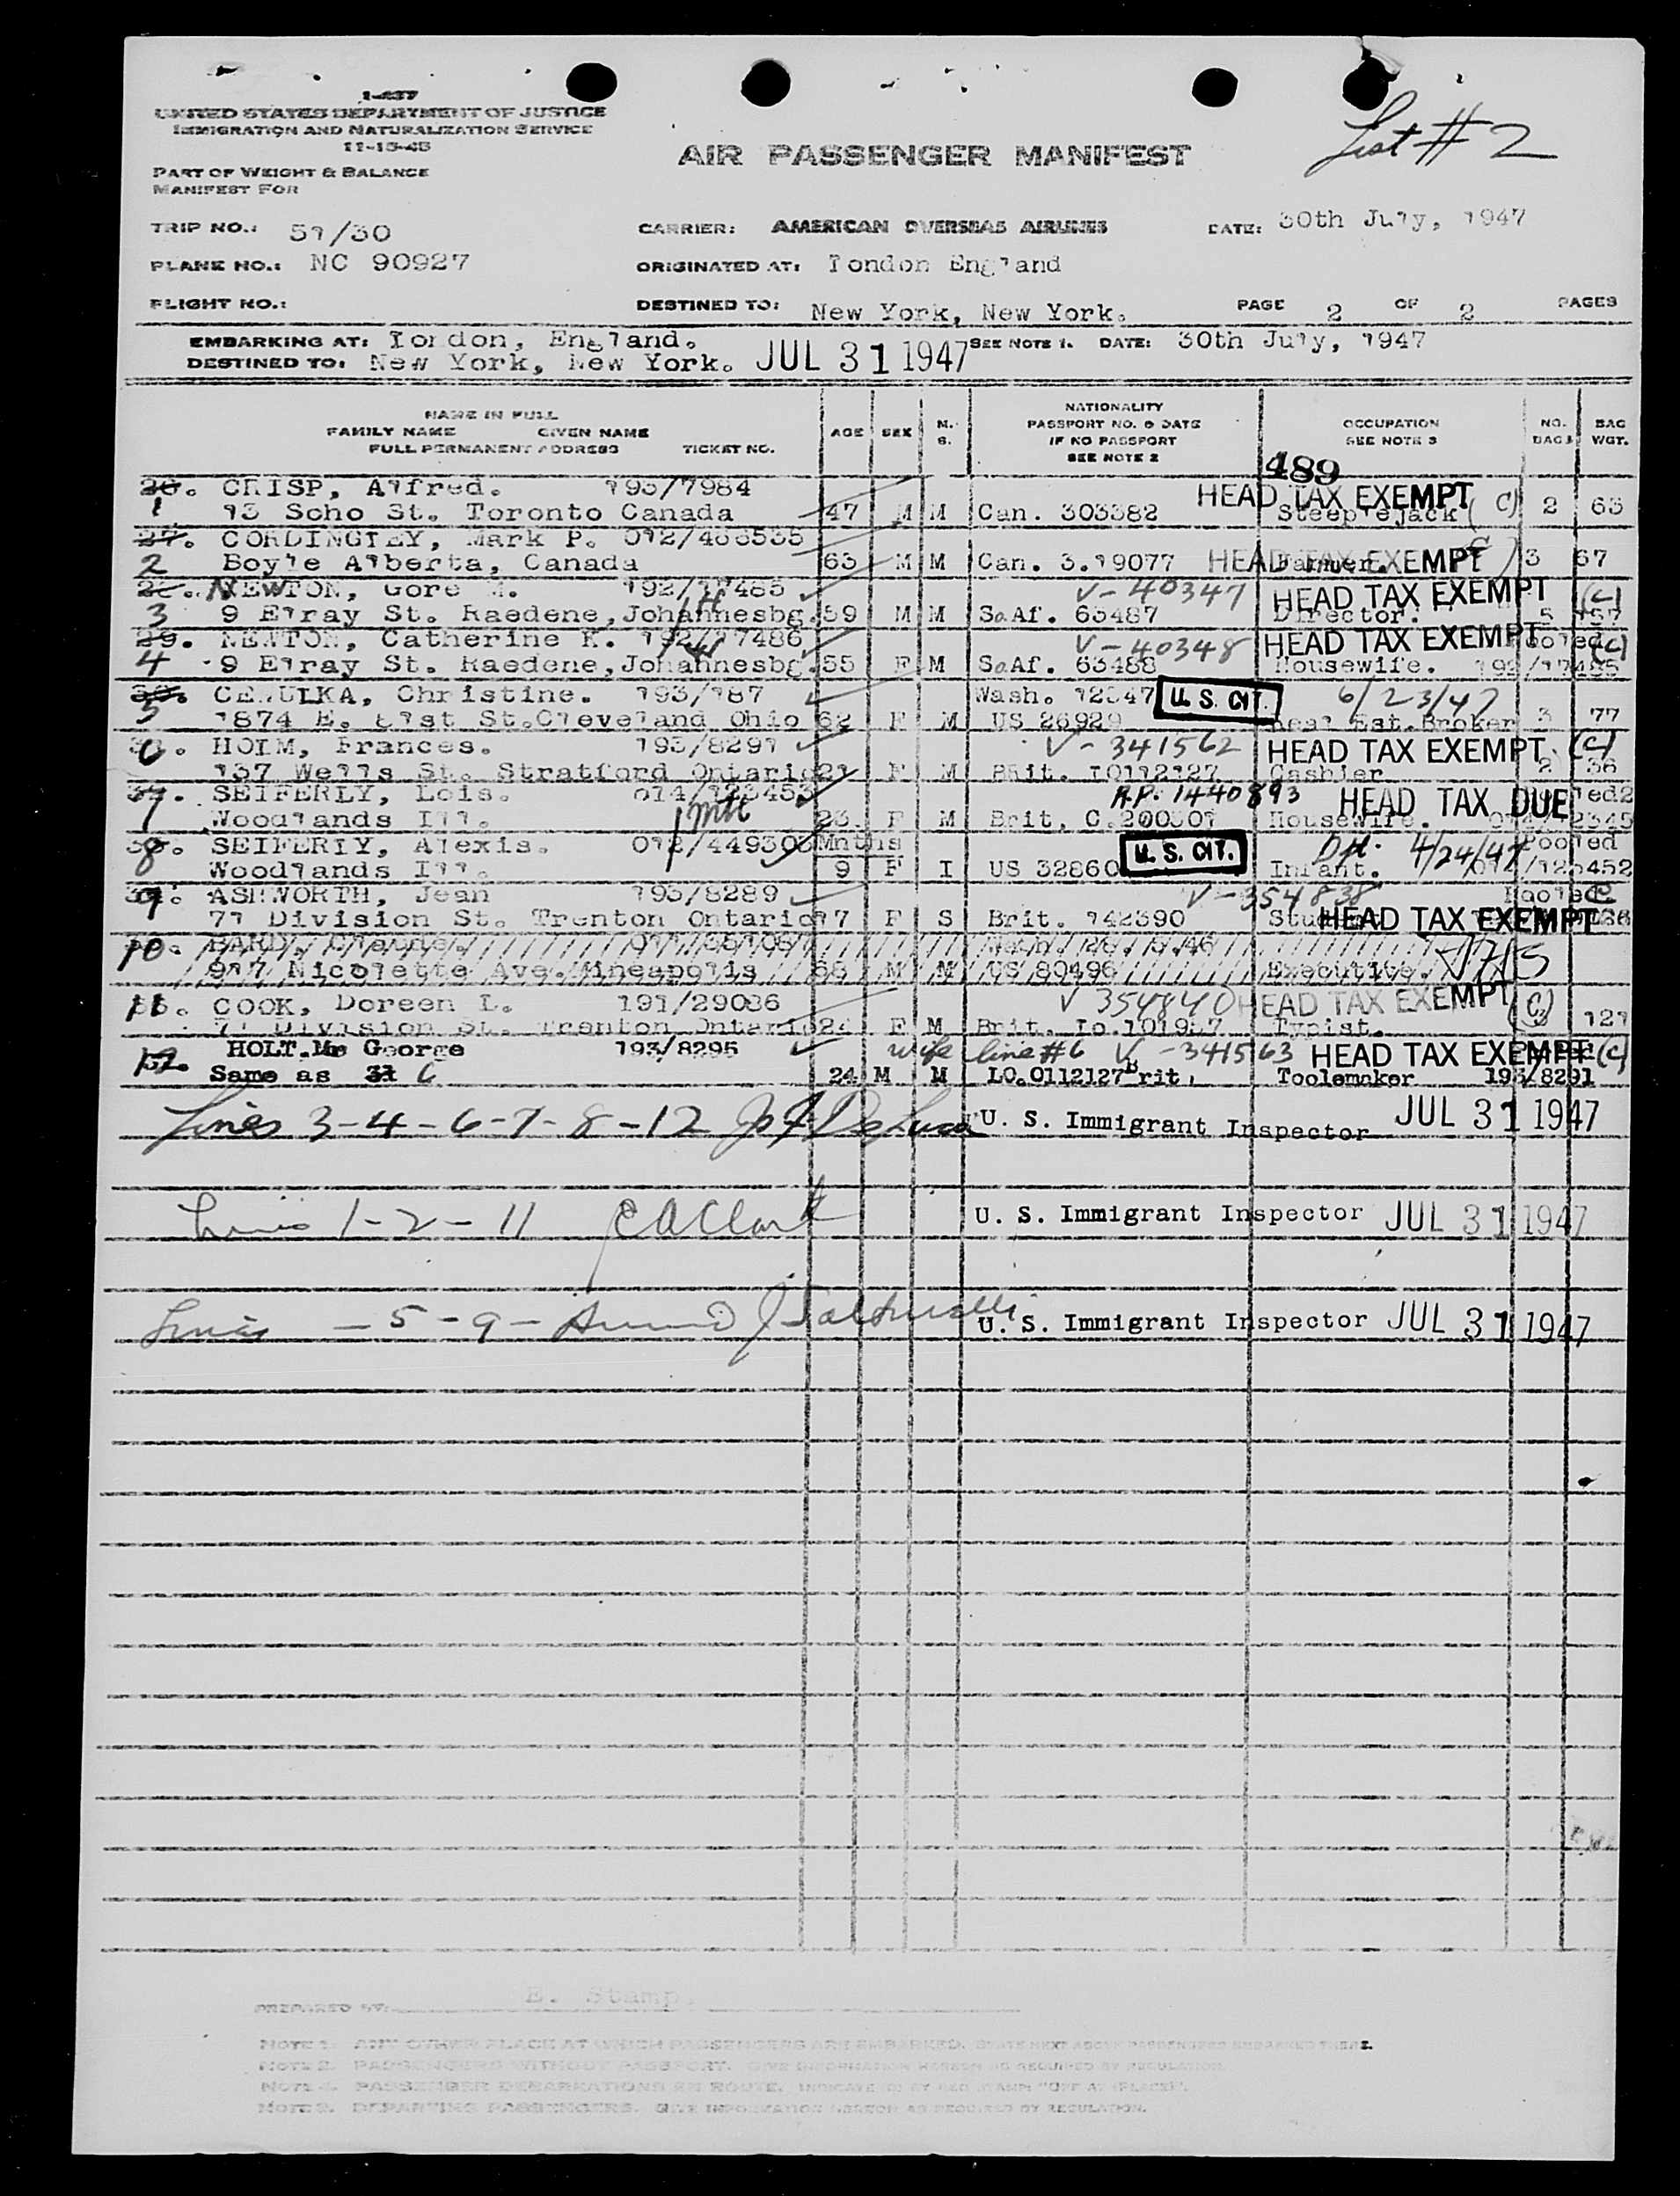 List # 2
UNITED STATES DEPARTMENT OF JUSTICE
IMMIGRATION AND NATURALIZATION SERVICE
11-15-45
AIR PASSENGER MANIFEST
PART OF WEIGHT & BALANCE
MANIFEST FOR
TRIP NO.: 51/30 CARRIER: AMERICAN OVERSEAS AIRLINES DATE: 30th July, 1947
PLANE NO.: NC 90927 ORIGINATED AT: London England
FLIGHT NO.: DESTINED TO: New York, New York. PAGE 2 OF 2 PAGES
EMBARKING AT: London, England. SEE NOTE 1. DATE: 30th July, 1947
DESTINED TO: New York, New York. JUL 31 1947
NAME IN FULL
FAMILY NAME GIVEN NAME
FULL PERMANENT ADDRESS TICKET NO.
AGE SEX M. S.
NATIONALITY
PASSPORT NO. & DATE
IF NO PASSPORT
SEE NOTE 2
OCCUPATION
SEE NOTE 3
NO. BAGS
BAG WGT.
489
26. CRISP, Alfred. 193/7984 HEAD TAX EXEMPT (C)
1 13 Soho St. Toronto Canada 47 M M Can. 303382 Steeplejack 2 63
27. CORDINGLEY, Mark P. 012/406535
2 Boyle Alberta, Canada 63 M M Can. 3.19077 HEAD TAX EXEMPT Farmer. 3 67
NEWTON, Gore M. 192/17485 V-40347 HEAD TAX EXEMPT (C)
3 9 Elray St. Raedene, Johannesbg. 59 M M So.Af. 63487 Director. 5 157
29. NEWTON, Catherine K. 192/17486 V-40348 HEAD TAX EXEMPT Pooled (C)
4 9 Elray St. Raedene, Johannesbg. 55 F M So.Af. 63488 Housewife. 192/17485
30. CEHULKA, Christine. 193/187 Wash. U.S. CIT. 6/23/47
5 1874 E. 81st St. Cleveland Ohio 62 F M US 26929 Real Est. Broker 3 77
6. HOLM, Frances. 193/8291 V-341562 HEAD TAX EXEMPT (C)
137 Wells St. Stratford Ontario 21 F M Brit. LO112127 Cashier 2 36
SEIFERLY, Lois. 014/123453 A.P. 1440893 HEAD TAX DUE
7 Woodlands Ill. 23. F M Brit, C.200301 Housewife.
SEIFERLY, Alexis. 012/449303 Mnths U.S. CIT. 4/24/47 Pooled
8 Woodlands Ill. 9 F I US 32860 Infant. 014/123452
9. ASHWORTH, Jean 193/8289 V-354838 Pooled
71 Division St. Trenton Ontario 17 F S Brit. 142390 HEAD TAX EXEMPT
10. BARD, Claude.
917 Nicolette Ave. Mineapolis 68 M M US 80496 Executive.
11. COOK, Doreen L. 191/29086 V 354840 HEAD TAX EXEMPT (C)
71 Division St. Trenton Ontario 24 F M Brit. Lo.101957 Typist. 121
12. HOLT. Mr George 193/8295 wife line #6 V-341563 HEAD TAX EXEMPT (C)
Same as 31 6 24 M M LO.0112127 Brit. Toolemaker 193/8291
Lines 3-4-6-7-8-12 U. S. Immigrant Inspector JUL 31 1947
Lines 1-2-11 C A Clark U. S. Immigrant Inspector JUL 31 1947
Lines - 5 - 9 - U. S. Immigrant Inspector JUL 31 1947
PREPARED BY: E. Stamp.
NOTE 1. ANY OTHER PLACE AT WHICH PASSENGERS ARE EMBARKED. STATE NEXT ABOVE PASSENGERS EMBARKED THERE.
NOTE 2. PASSENGERS WITHOUT PASSPORT. GIVE INFORMATION HEREON AS REQUIRED BY REGULATION.
PASSENGER DEBARKATIONS EN ROUTE. INDICATE
NOTE 3. DEPARTING PASSENGERS. GIVE INFORMATION HEREON AS REQUIRED BY REGULATION.